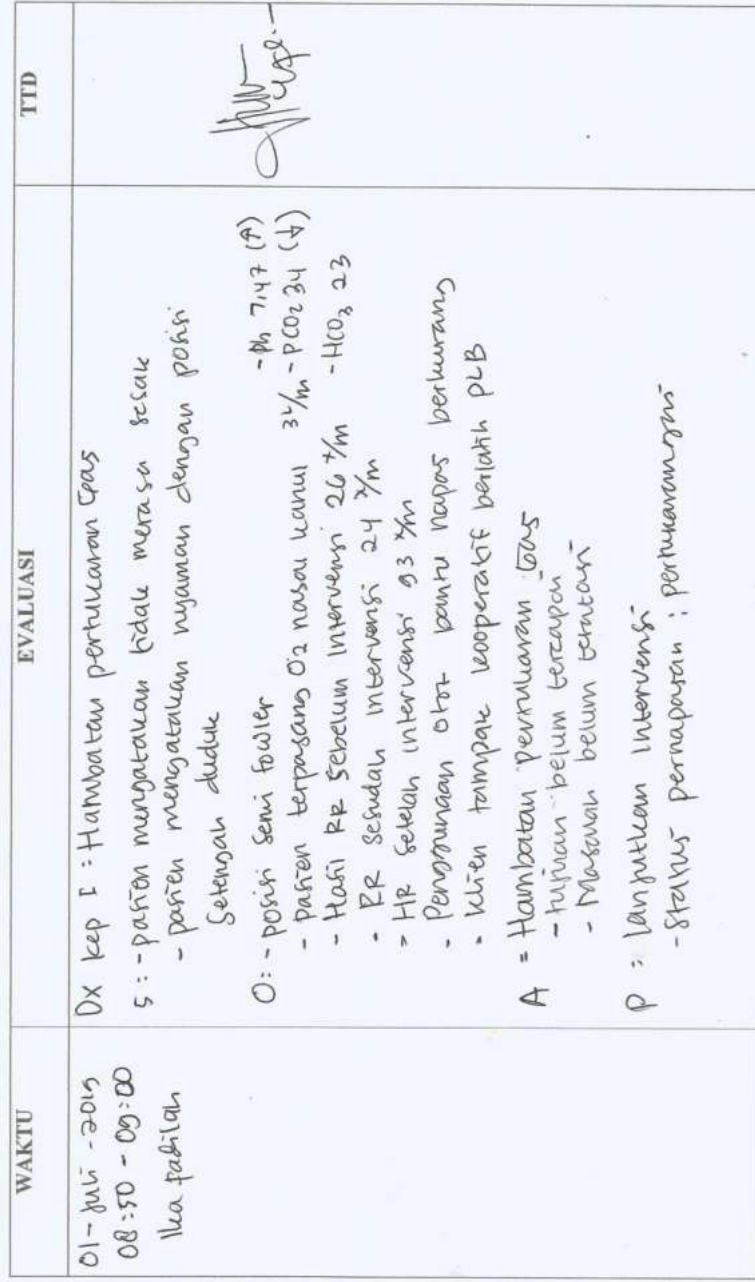 WAKTU
EVALUASI
TTD
01 - Juli - 2019
08:50 - 09:00
Ika Padilah
DX kep I : Hambatan pertukaran Gas
S : - pasien mengatakan tidak merasa sesak
- pasien mengatakan nyaman dengan posisi
setengah duduk
O : - posisi semi fowler
- pasien terpasang O2 nasal kanul 3L/m
- Hasil RR sebelum intervensi 26 x/m
- RR sesudah intervensi 24 x/m
- HR setelah intervensi 93 x/m
- Penggunaan otot bantu napas berkurang
- Klien tampak kooperatif berlatih PLB
- Ph 7,47 (↑)
- PCO2 34 (↓)
- HCO3 23
A = Hambatan pertukaran Gas
- tujuan belum tercapai
- Masalah belum teratasi
P : lanjutkan intervensi
- Status pernapasan : pertukaran gas